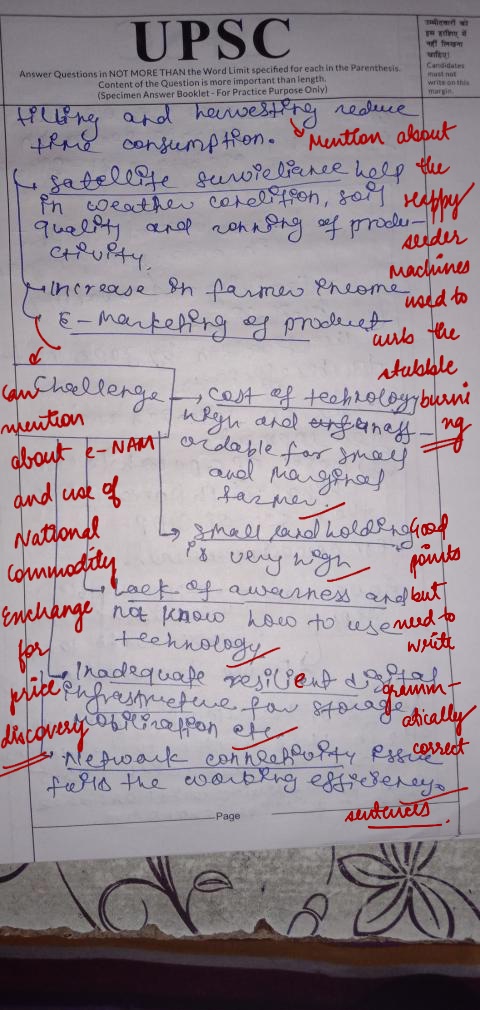 UPSC
उम्मीदवारों को
इस हाशिए में
नहीं लिखना
चाहिए।
Candidates
must not
write on this
margin.
Answer Questions in NOT MORE THAN the Word Limit specified for each in the Parenthesis.
Content of the Question is more important than length.
(Specimen Answer Booklet - For Practice Purpose Only)
tilling and harvesting reduce
time consumption.
Mention about
the
Happy
seeder
machines
used to
curb the
stubble
burni
ng
satellite survielliance help
in weather condition, soil
quality and running of produ-
ctivity.
Increase in farmer income
E-marketing of product
Challenge
can
mention
about e-NAM
and use of
National
Commodity
Exchange
for
price
discovery
cost of technology
high and unaff-
ordable for small
and marginal
farmer.
small landholding
is very high
Lack of awarness and
not know how to use
technology
Inadequate resilient digital
infrastructure for storage
mobilisation etc.
Network connectivity issue
fails the working efficiency.
Good
points
but
need to
write
gramm-
atically
correct
sentences.
Page